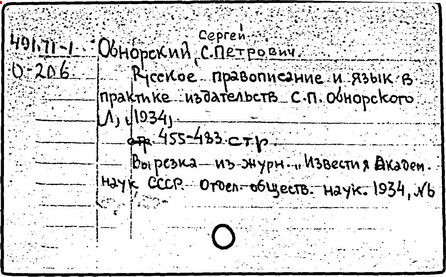 Сергей
491.71-1 Обнорский, С. Петрович.
О-206 Русское правописание и язык в
практике издательств С.П. Обнорского
Л, 1934,
стр. 455-483 стр.
Вырезка из журн. „Известия Академ.
наук СССР. Отдел. обществ. наук. 1934, №6